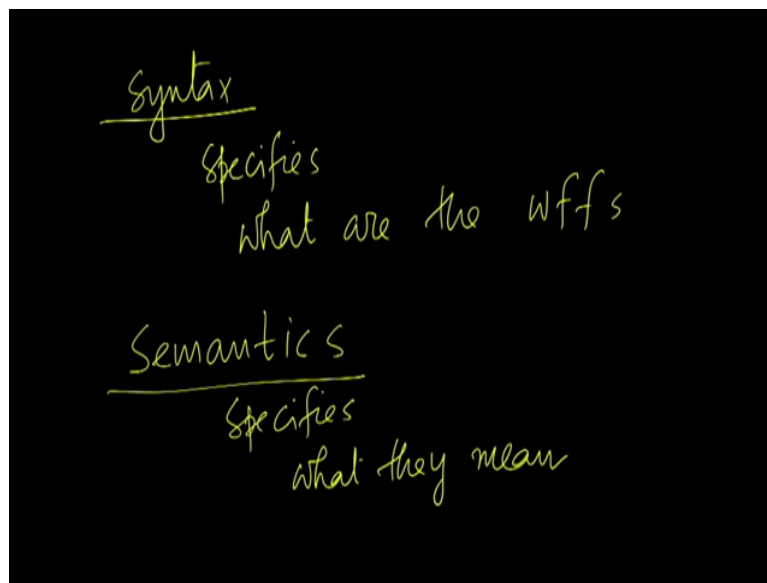 Syntax
Specifies
what are the wffs
Semantics
Specifies
what they mean